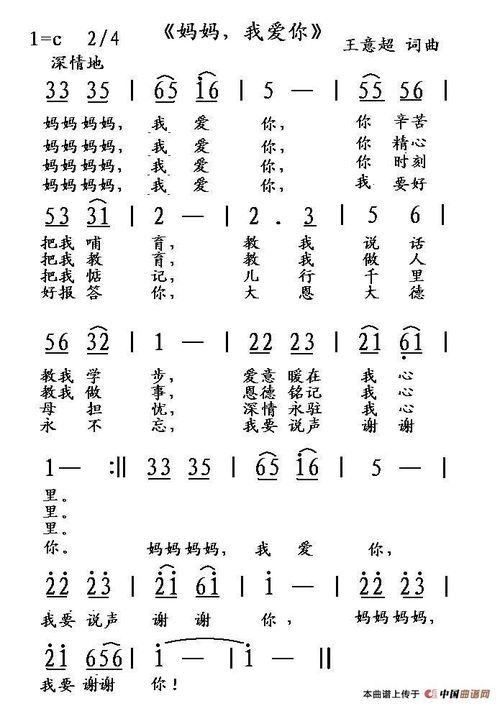 《妈妈，我爱你》
1=c 2/4
王意超 词曲
深情地
33 35 | 65 i6 | 5 — | 55 56 |
妈妈妈妈， 我 爱 你， 你 辛苦
妈妈妈妈， 我 爱 你， 你 精心
妈妈妈妈， 我 爱 你， 你 时刻
妈妈妈妈， 我 爱 你， 我 要好
53 31 | 2 — | 2 . 3 | 5 6 |
把我 哺 育， 教 我 说 话
把我 教 育， 教 我 做 人
把我 惦 记， 儿 行 千 里
好报 答 你， 大 恩 大 德
56 32 | 1 — | 22 23 | 21 61 |
教我 学 步， 爱意 暖在 我 心
教我 做 事， 恩德 铭记 我 心
母 担 忧， 深情 永驻 我 心
永 不 忘， 我要 说声 谢 谢
1— :‖ 33 35 | 65 i6 | 5 — |
里。
里。
里。
你。 妈妈 妈妈， 我 爱 你，
22 23 | 2i 6i | i — | 22 23 |
我要 说声 谢 谢 你， 妈妈妈妈，
2i 656 | i — | i — ‖
我要 谢谢 你！
本曲谱上传于 中国曲谱网